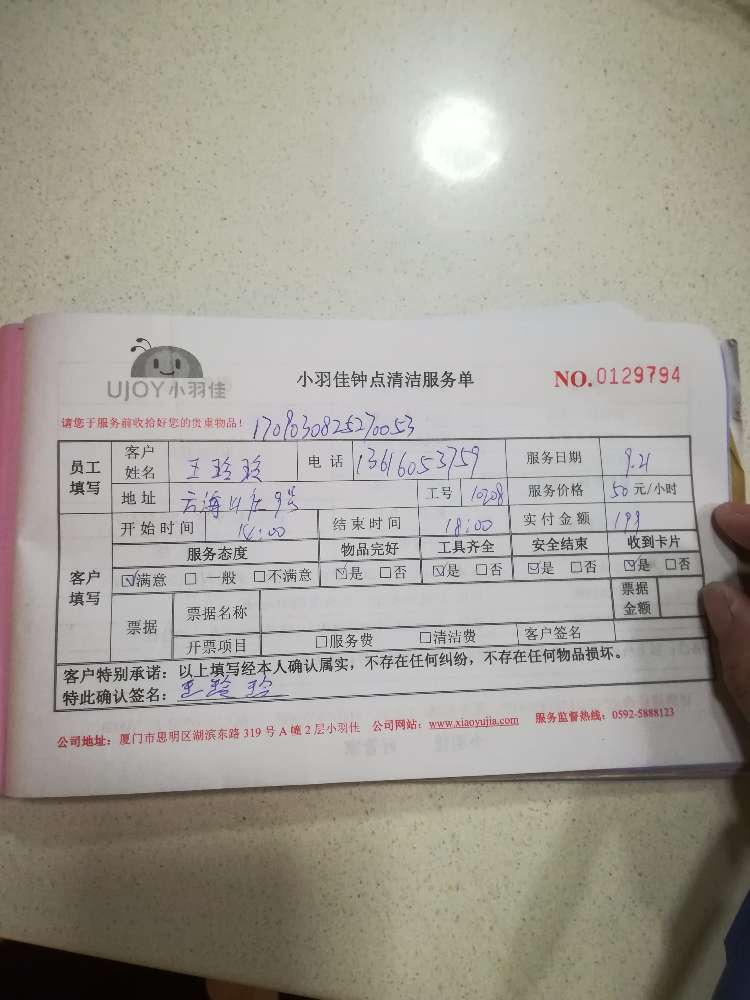 UJOY小羽佳
小羽佳钟点清洁服务单
NO.0129794
请您于服务前收拾好您的贵重物品！
1709030825270053
员工填写 客户姓名 王玲玲 电话 13616053759 服务日期 9.21
地址 9号 工号 10208 服务价格 50元/小时
开始时间 14:00 结束时间 18:00 实付金额 199
客户填写 服务态度 物品完好 工具齐全 安全结束 收到卡片
☑满意 □一般 □不满意 ☑是 □否 ☑是 □否 ☑是 □否 ☑是 □否
票据 票据名称 票据金额
开票项目 □服务费 □清洁费 客户签名
客户特别承诺：以上填写经本人确认属实，不存在任何纠纷，不存在任何物品损坏。
特此确认签名：王玲玲
公司地址：厦门市思明区湖滨东路319号A幢2层小羽佳 公司网站：www.xiaoyujia.com 服务监督热线：0592-5888123